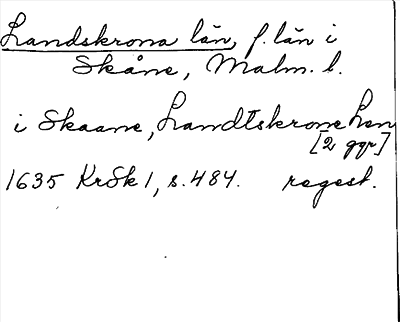 Landskrona län, f. län i
Skåne, Malm. l.
i Skaane, Landtskrone Len
[2 ggr]
1635 KrSk 1, s. 484. regest.